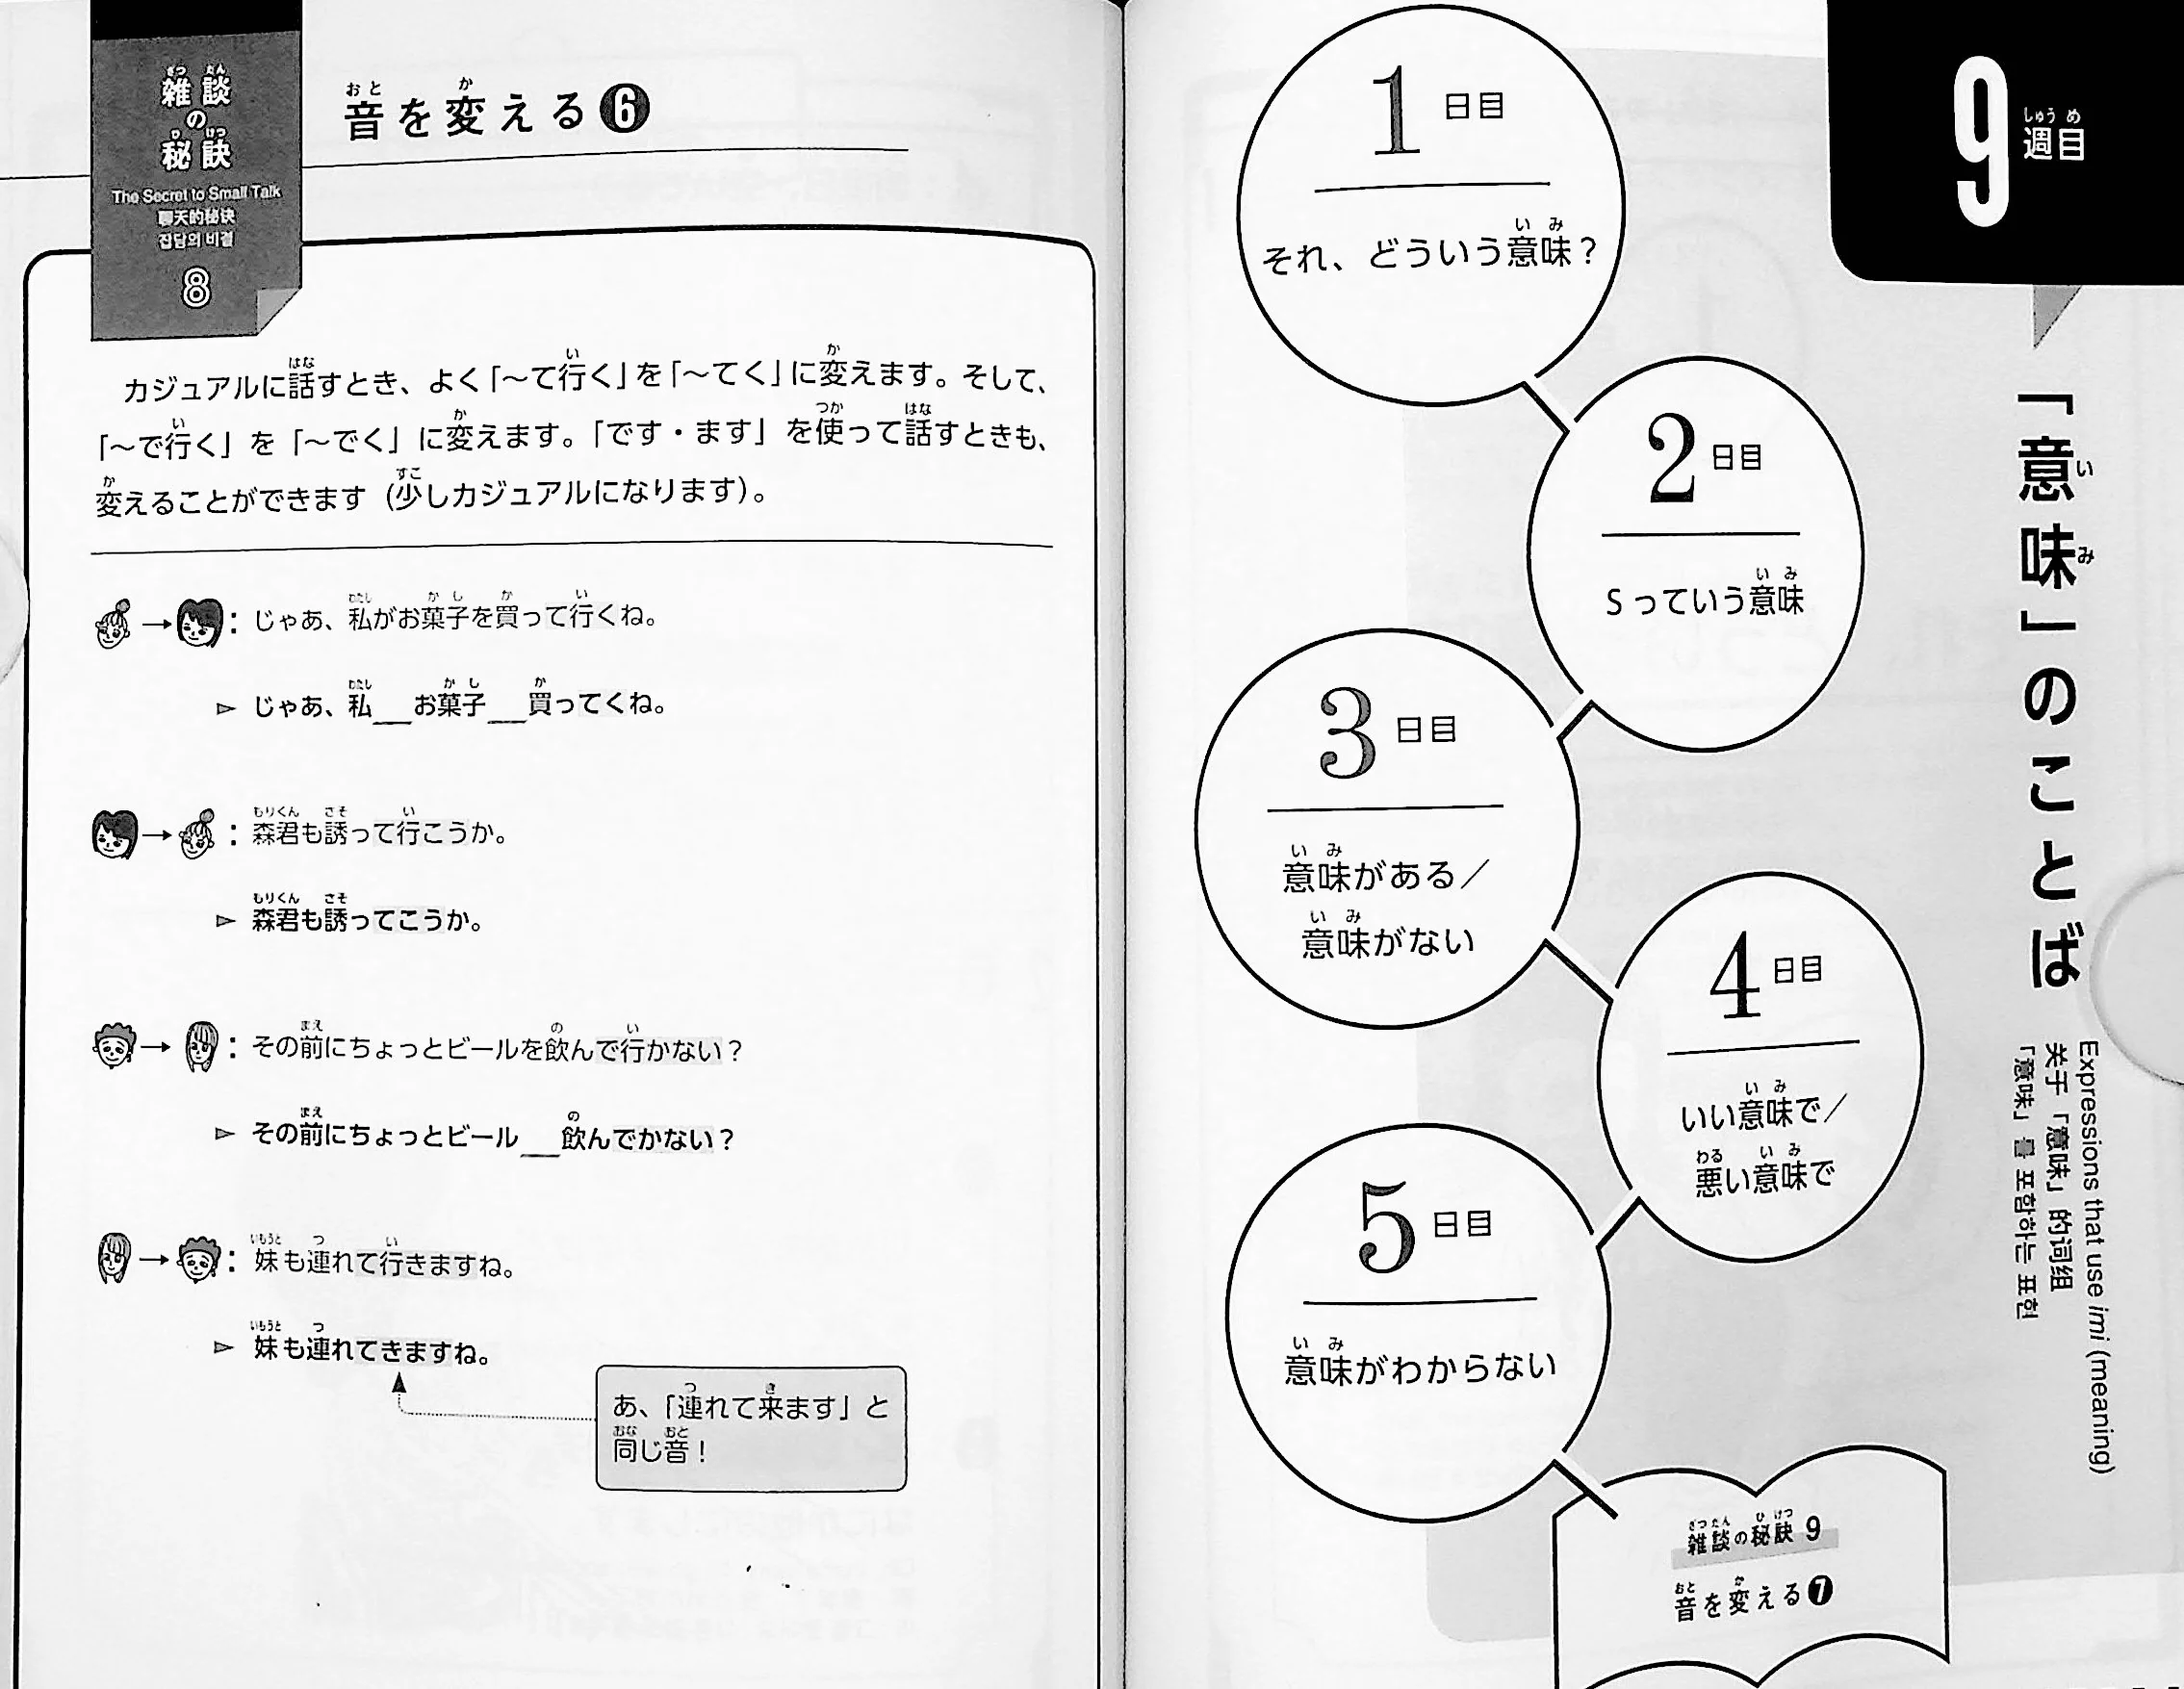 雑談
の
秘訣
The Secret to Small Talk
聊天的秘诀
잡담의 비결
8
音を変える❻
カジュアルに話すとき、よく「～て行く」を「～てく」に変えます。そして、
「～で行く」を「～でく」に変えます。「です・ます」を使って話すときも、
変えることができます（少しカジュアルになります）。
→：じゃあ、私がお菓子を買って行くね。
▷ じゃあ、私＿お菓子＿買ってくね。
→：森君も誘って行こうか。
▷ 森君も誘ってこうか。
→：その前にちょっとビールを飲んで行かない？
▷ その前にちょっとビール＿飲んでかない？
→：妹も連れて行きますね。
▷ 妹も連れてきますね。
あ、「連れて来ます」と
同じ音！
9週目
「意味」のことば
Expressions that use imi (meaning)
关于「意味」的词组
「意味」를 포함하는 표현
1日目
それ、どういう意味？
2日目
Sっていう意味
3日目
意味がある／
意味がない
4日目
いい意味で／
悪い意味で
5日目
意味がわからない
雑談の秘訣 9
音を変える❼